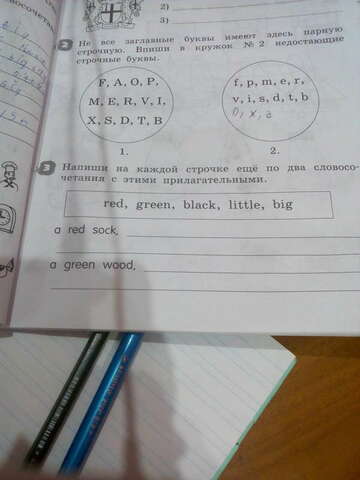 2)
3)
2 Не все заглавные буквы имеют здесь парную
строчную. Впиши в кружок № 2 недостающие
строчные буквы.
F, A, O, P,
M, E, R, V, I,
X, S, D, T, B
1.
f, p, m, e, r,
v, i, s, d, t, b
o, x, a
2.
3 Напиши на каждой строчке ещё по два словосо-
четания с этими прилагательными.
red, green, black, little, big
a red sock,
a green wood,